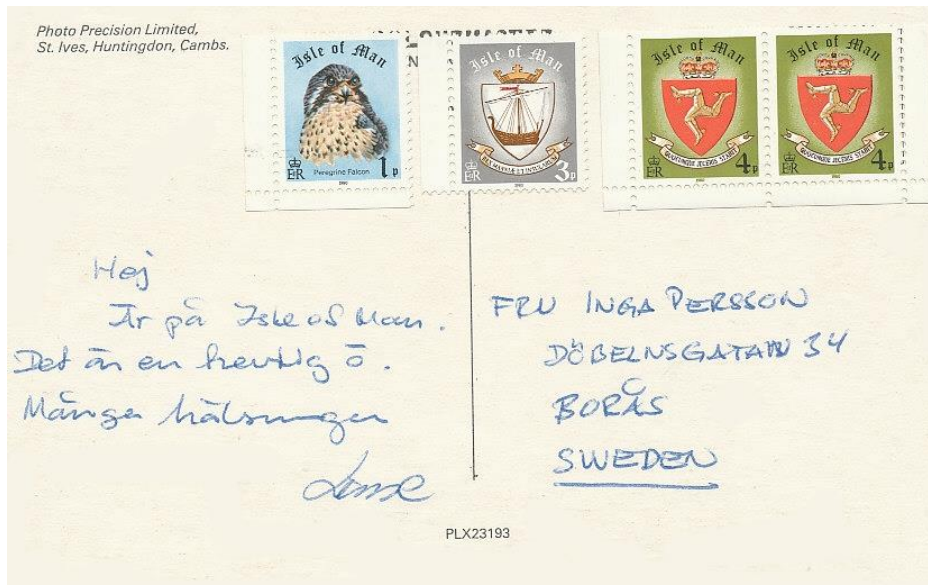 Photo Precision Limited,
St. Ives, Huntingdon, Cambs.
Isle of Man
Peregrine Falcon
ER
1p
Isle of Man
REX MANNIAE ET INSULARUM
ER
3p
Isle of Man
QUOCUNQUE JECERIS STABIT
ER
4p
Isle of Man
QUOCUNQUE JECERIS STABIT
ER
4p
Hej
Är på Isle of Man.
Det är en hertig ö.
Många hälsningar
FRU INGA PERSSON
DÖBELNSGATAN 34
BORÅS
SWEDEN
PLX23193